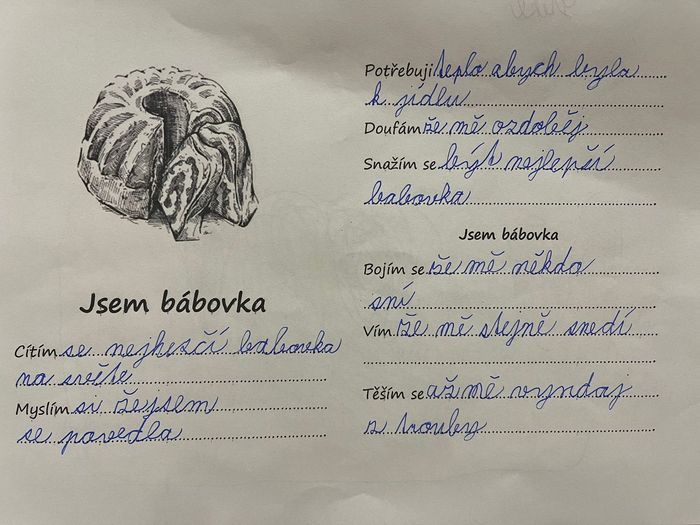 Jsem bábovka
Cítím se nejhesčí babovka
na světe
Myslím si žejsem
se povedla
Potřebuji teplo abych byla
k jídlu
Doufám že mě ozdoběj
Snažím se být nejlepčí
babovka
Jsem bábovka
Bojím se že mě někdo
sní
Vím že mě stejně snedí
Těším se až mě vyndaj
z trouby